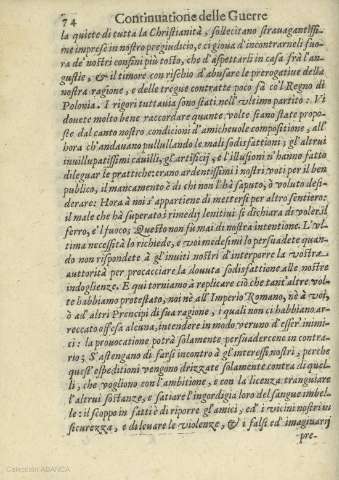 74 Continuatione delle Guerre
la quiete di tutta la Christianità, sollecitano strauagantissi-
me imprese in nostro pregiudicio, e ci gioua d'incontrarneli fuo-
ra de' nostri confini più tosto, che d'aspettarli in casa frà l'an-
gustie, & il timore con rischio d'abusare le prerogatiue della
nostra ragione, e delle tregue contratte poco fà co'l Regno di
Polonia. I rigori tuttauia sono stati nell'vltimo partito: Vi
douete molto bene raccordare quante volte siano state propo-
ste dal canto nostro condicioni d'amicheuole compositione, all'
hora ch'andauano pullullando le mali sodisfattioni; gl'altrui
inuiluppatissimi cauilli, gl'artificij, e l'illusioni s'hanno fatto
dileguar le prattiche: erano ardentissimi i nostri voti per il ben
publico, il mancamento è di chi non l'hà saputo, ò voluto desi-
derare: Hora à noi s'appartiene di mettersi per altro sentiero:
il male che hà superato i rimedij lenitiui si dichiara de voler il
ferro, e'l fuoco; Questo non fu mai di nostra intentione. L'vl-
tima necessità lo richiede, e voi medesimi lo persuadete quan-
do non rispondete à gl'inuiti nostri d'interporre la vostra
auttorità per procacciare la douuta sodisfattione alle nostre
indoglienze. E qui torniamo à replicare ciò che tant'altre vol-
te habbiamo protestato, noi nè all'Imperio Romano, nè à voi,
ò ad altri Prencipi di sua ragione, i quali non ci habbiano ar-
reccato offesa alcuna, intendere in modo veruno d'esser inimi-
ci: la prouocatione potrà solamente persuadercene in contra-
rio; S'astengano di farsi incontro à gl'interessi nostri, perche
quest'espeditioni vengono drizzate solamente contra di quel-
li, che vogliono con l'ambitione, e con la licenza tranguiare
l'altrui sostanze, e satiare l'ingordigia loro del sangue imbel-
le: il scoppo in fatti è di riporre gl'amici, ed i vicini nostri in
sicurezza, e di leuare le violenze, & i falsi ed imaginarij
pre-
Colección ABANCA